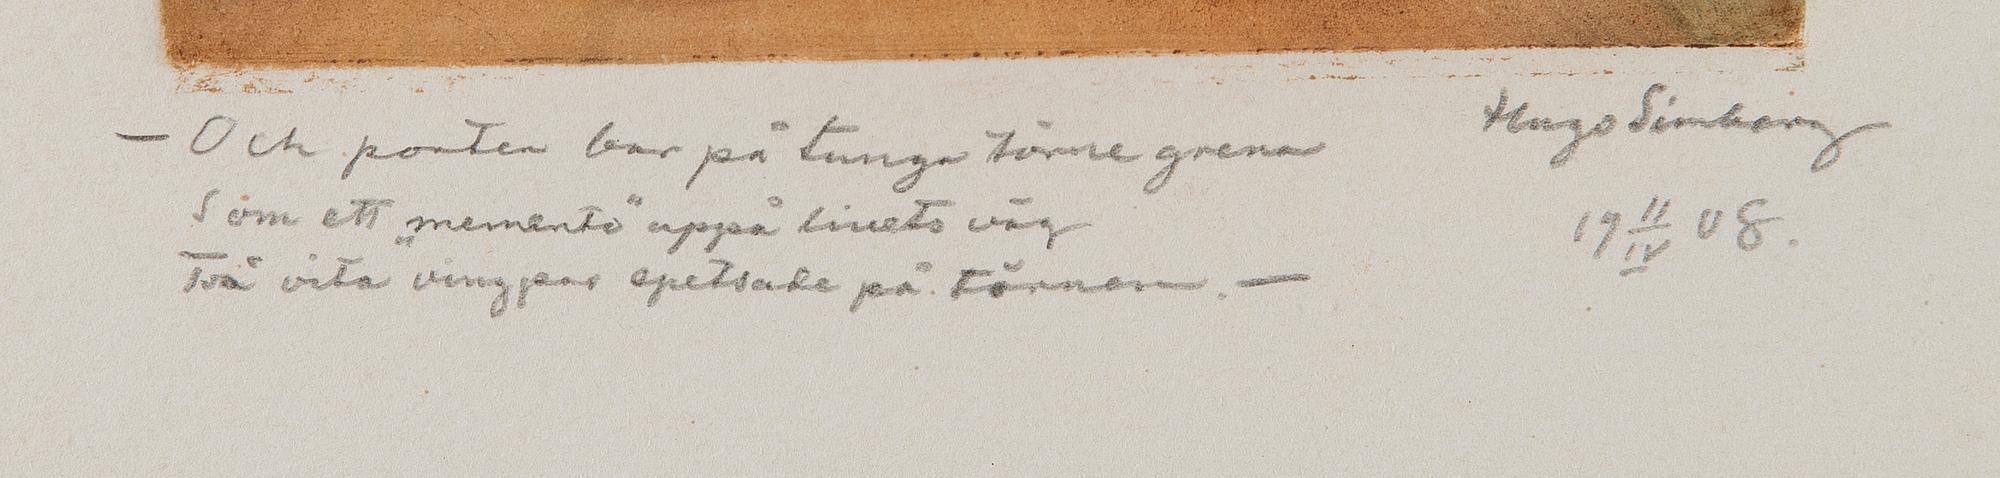 — Och porten bar på tunga törne grena
Som ett „memento" uppå livets väg
Två vita vingpar spetsade på törnen. —
Hugo Simberg
19 11/IV 08.